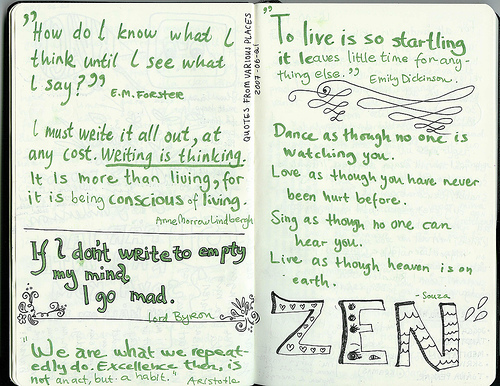 "How do I know what I
think until I see what
I say?"
E.M. Forster
I must write it all out, at
any cost. Writing is thinking.
It is more than living, for
it is being conscious of living.
Anne Morrow Lindbergh
If I don't write to empty
my mind,
I go mad.
Lord Byron
"We are what we repeat-
edly do. Excellence then, is
not an act, but a habit."
Aristotle
QUOTES FROM VARIOUS PLACES
2007-06-21
"To live is so startling
it leaves little time for any-
thing else."
Emily Dickinson.
Dance as though no one is
watching you.
Love as though you have never
been hurt before.
Sing as though no one can
hear you.
Live as though heaven is on
earth.
- Souza
ZEN